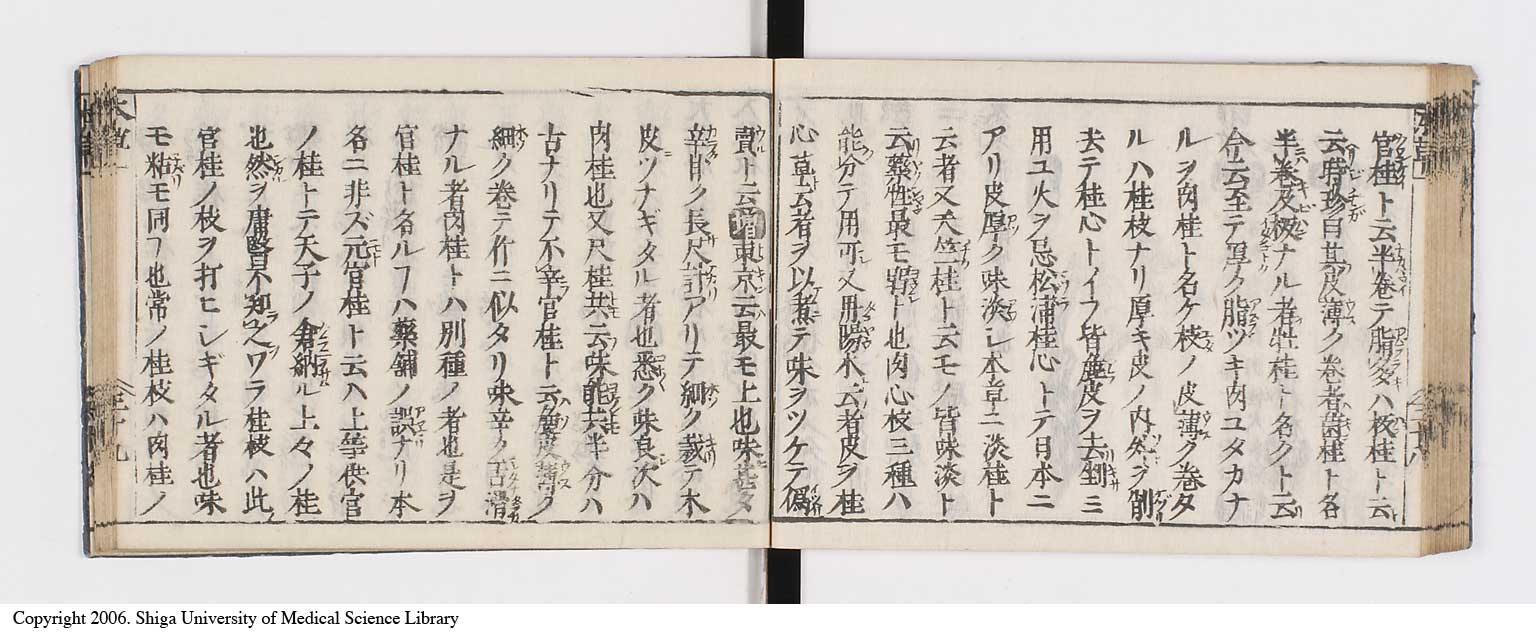 官桂ト云半卷テ脂多ハ板桂ト云
云時珍曰其皮薄ク卷者菌桂ト名
半卷皮板ナル者牡桂ト名クト云
今云至テ厚ク脂ツキ肉ユタカナ
ルヲ肉桂ト名ケ枝ノ皮薄ク卷タ
ルハ桂枝ナリ厚キ皮ノ内外ヲ削
去テ桂心トイフ皆麁皮ヲ去剉ミ
用ユ火ヲ忌松浦桂心トテ日本ニ
アリ皮厚ク味淡シ本草ニ淡桂ト
云者又天竺桂ト云モノ皆味淡ト
云藥性最モ劣ト也肉心枝三種ハ
能分テ用可又用陽木云者皮ヲ桂
心草云者ヲ以煮テ味ヲツケテ偽
賣ト云増東京云最モ上也味甚タ
辛甘ク長尺計アリテ細ク裁テ木
皮ツナギタル者也悉ク味良次ハ
肉桂也又尺桂共云味能去半分ハ
古ナリテ不辛官桂ト云麁皮薄ク
細ク卷テ竹ニ似タリ味辛ク舌滑
ナル者肉桂トハ別種ノ者也是ヲ
官桂ト名ルフハ藥舗ノ誤ナリ本
名ニ非ズ元官桂ト云ハ上等供官
ノ桂トテ天子ノ倉納ル上々ノ桂
也然ヲ庸醫不知之ワラ桂枝ハ此
官桂ノ枝ヲ打ヒシギタル者也味
モ粘モ同フ也常ノ桂枝ハ肉桂ノ
Copyright 2006. Shiga University of Medical Science Library